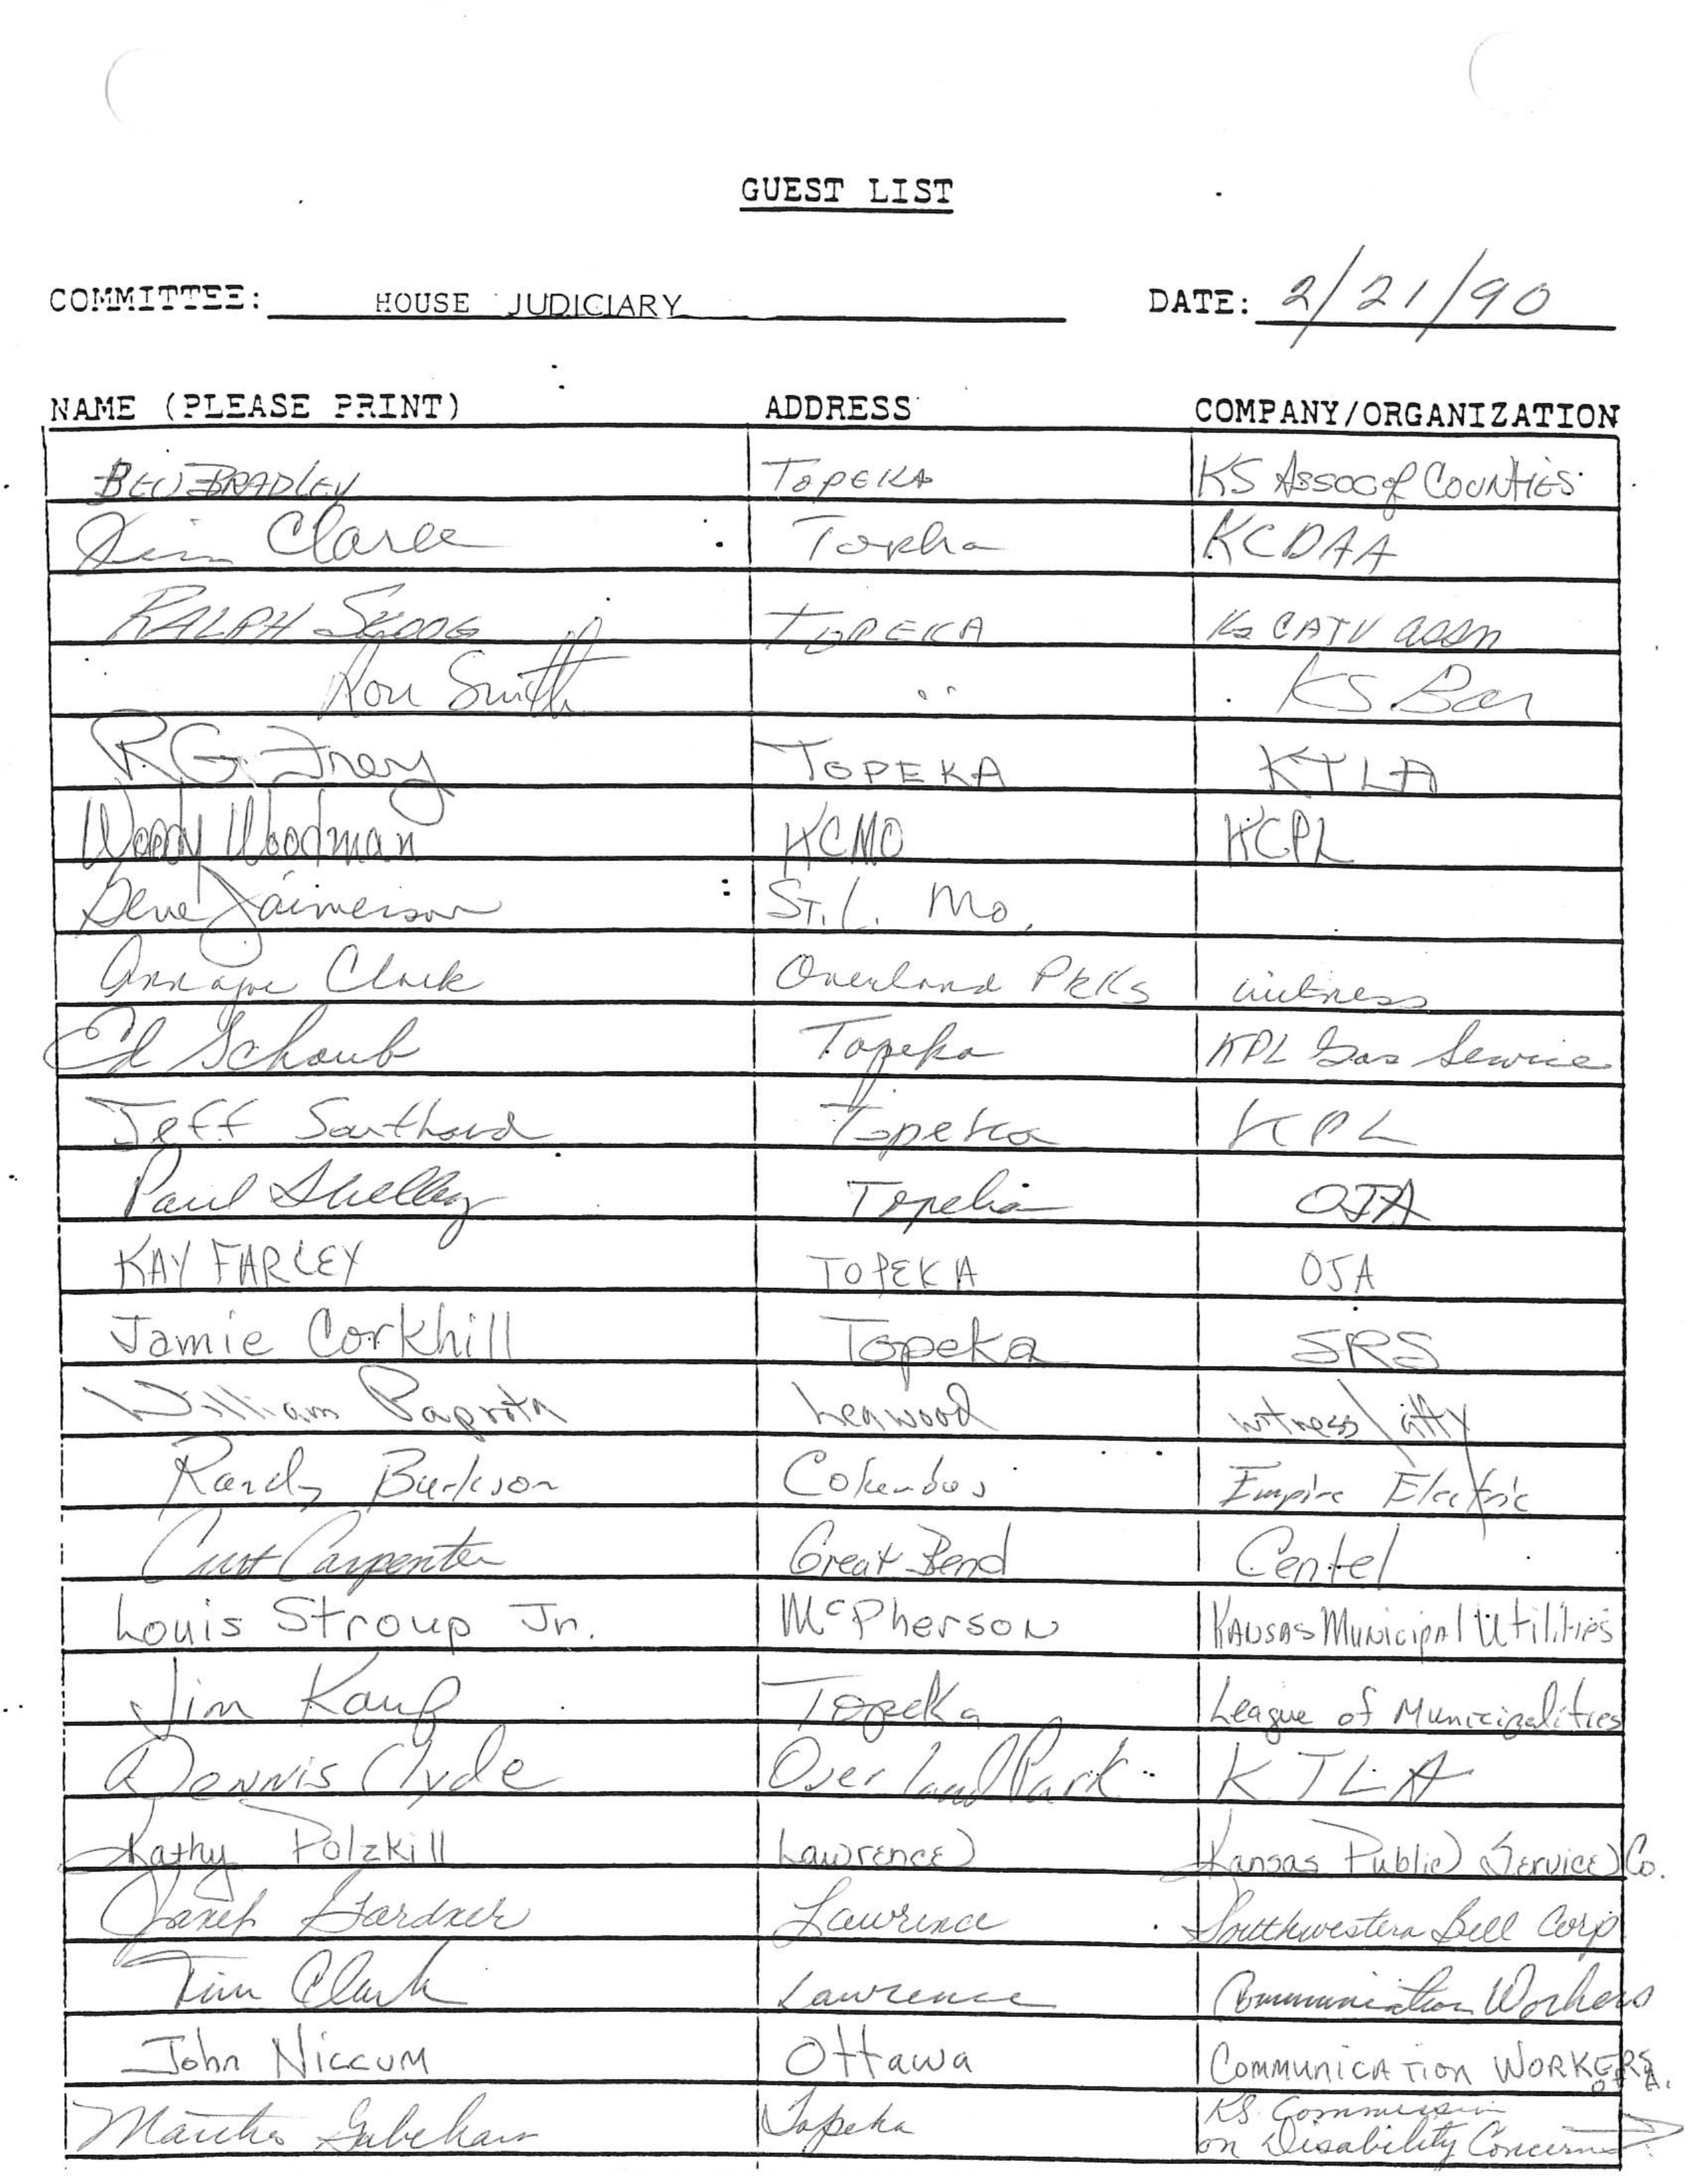 GUEST LIST
COMMITTEE: HOUSE JUDICIARY DATE: 2/21/90
NAME (PLEASE PRINT) ADDRESS COMPANY/ORGANIZATION
BEV BRADLEY TOPEKA KS ASSOC of COUNTIES
Jim Clark Topeka KCDAA
RALPH SKOOG TOPEKA Ks CATV assn
Ron Smith " KS Bar
RG Frey TOPEKA KTLA
Woody Woodman KCMO KCPL
Gene St. L. Mo.
Clark Overland Pk Ks witness
Ed Schaub Topeka KPL Gas Service
Jeff Southard Topeka KPL
Paul Shelby Topeka OJA
KAY FARLEY TOPEKA OJA
Jamie Corkhill Topeka SRS
William Paprota Leawood witness/atty
Randy Burleson Columbus Empire Electric
Curt Carpenter Great Bend Centel
Louis Stroup Jr. McPherson KANSAS MUNICIPAL Utilities
Jim Kaup Topeka League of Municipalities
Dennis Clyde Overland Park KTLA
Kathy Polzkill Lawrence Kansas Public Service Co.
Janet Gardner Lawrence Southwestern Bell Corp
Tim Clark Lawrence Communication Workers
John Niccum Ottawa COMMUNICATION WORKERS
OF A.
Martha Gabehart Topeka KS Commission
on Disability Concerns